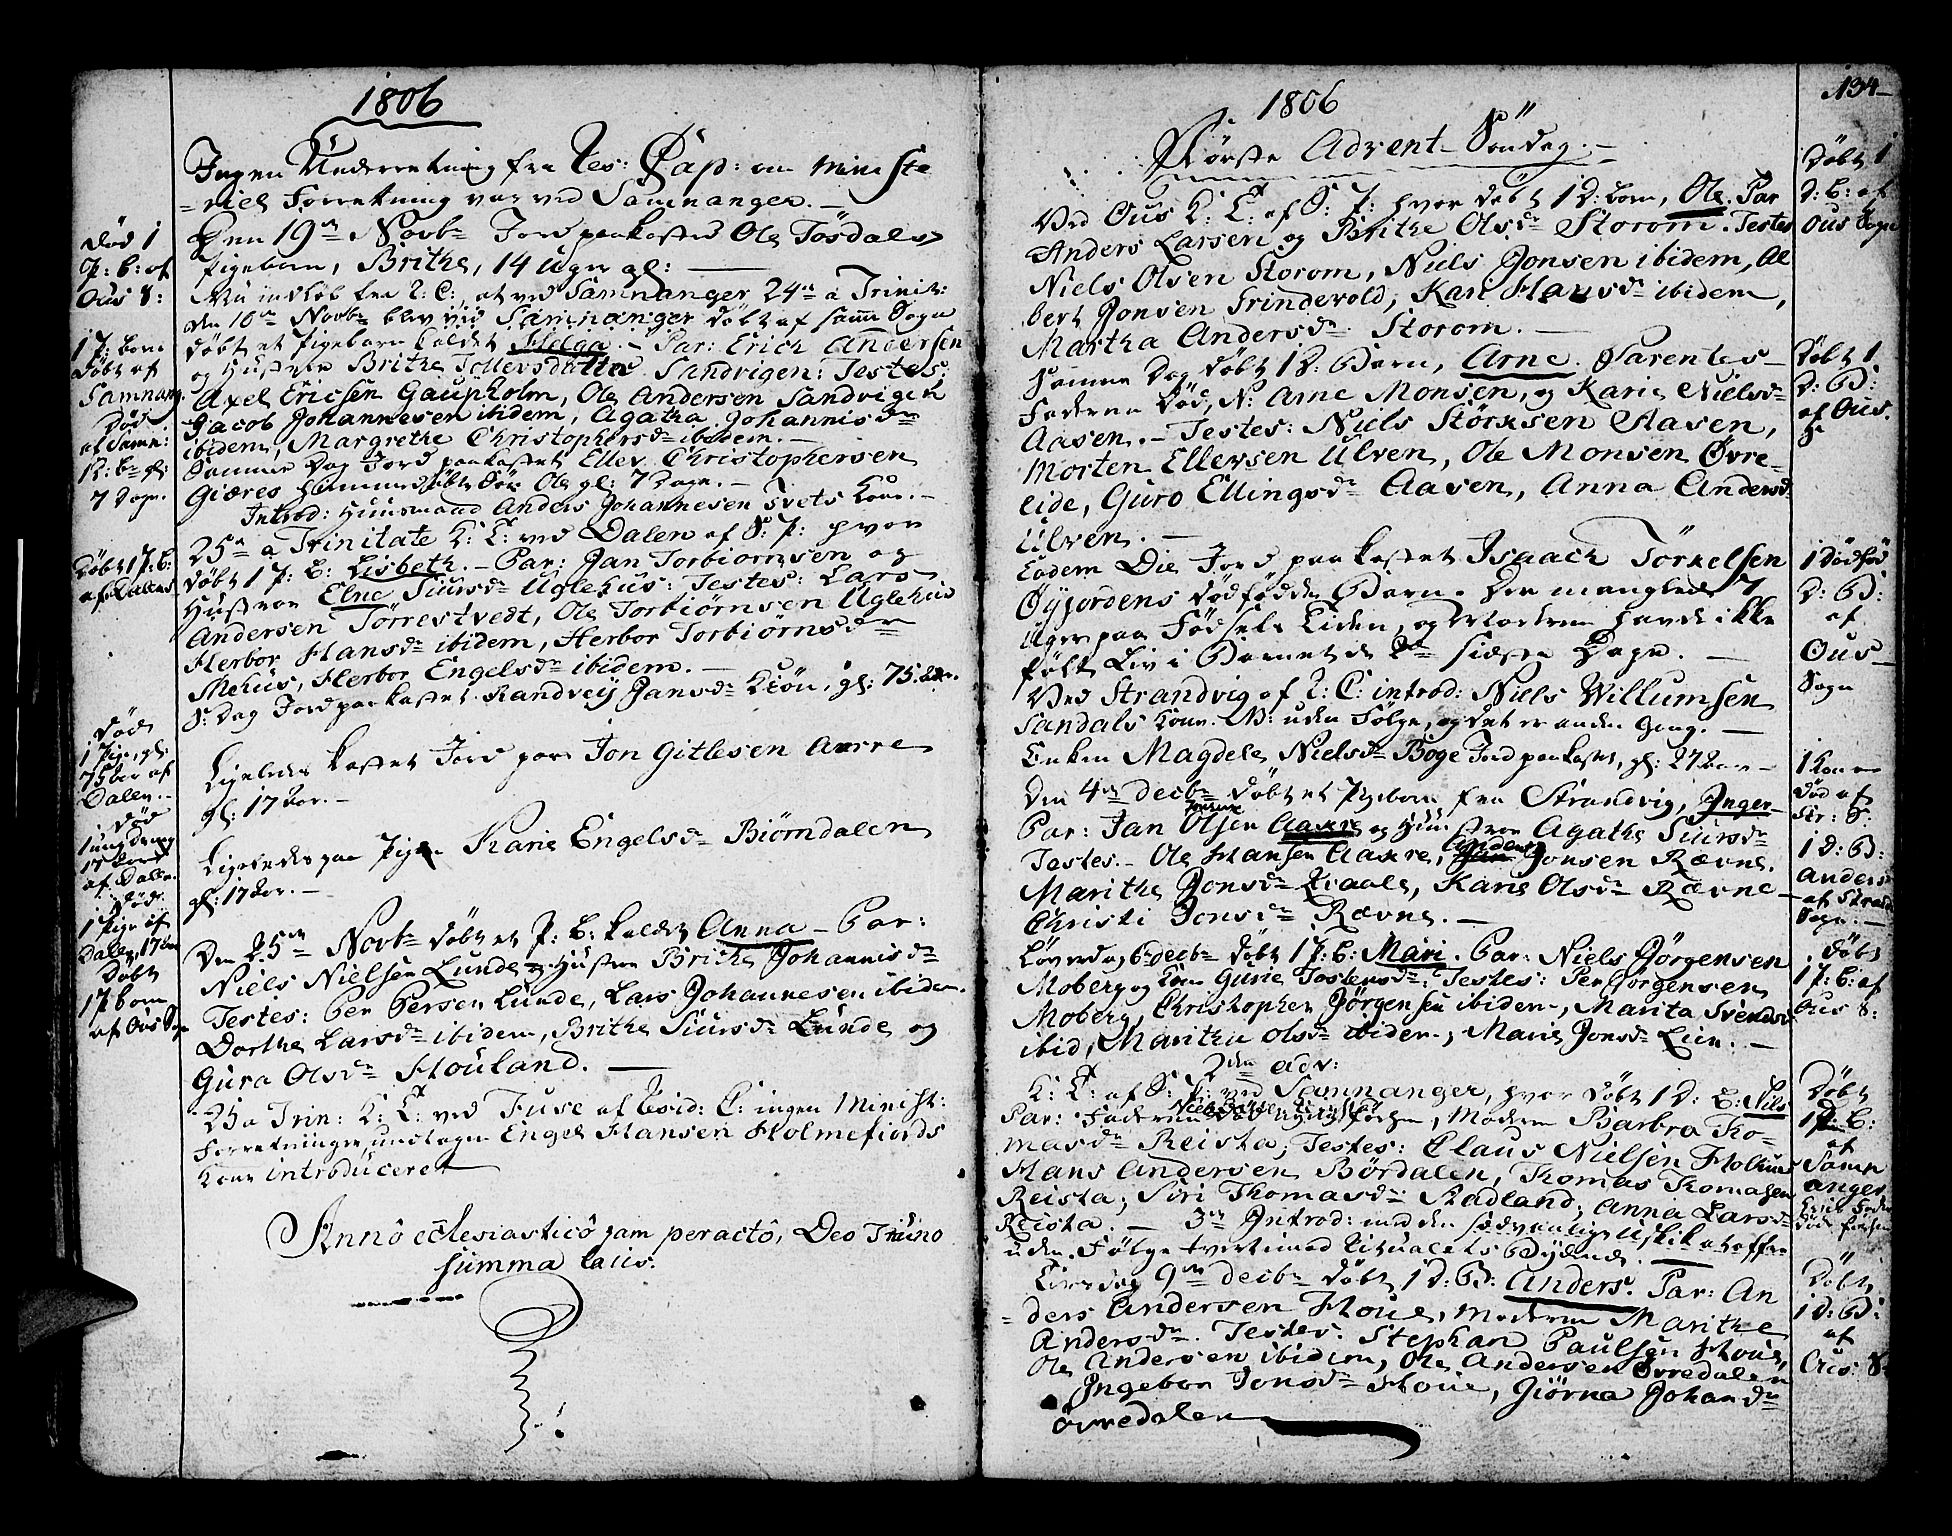 1806
Ingen Underretning fra Res: Cap: om ministe
-riel Forretning var ved Samnanger.-
Den 19de Novbr Jord paakastet Ole Tøsdals
Pigebarn, Brithe, 14 Uger gl:
Nu indløb fra R: C:, at ved Samnanger 24de a Trinit:
den 16de Novbr blev ved Samnanger døbt af samme Sogn
døbt et Pigebarn kaldet Helga.- Par: Erich Andersen
og Hustrue Brithe Tollevsdatter Sandvigen: Testes:
Axel Ericsen Gaupholm, Ole Andersen Sandvigen
Jacob Johannesen ibidem, Agatha Johannisdr
ibidem, Margrethe Christophersdr ibidem.-
Samme Dag Jord paakastet Ellev Christophersen
Giæres hiemmedøbte Søn Ole gl: 7 Dage.-
Introd: Huusmand Anders Johannesen Tvets Kone.-
25de a Trinitate K: T: ved Dalen af S: P: hvor
døbt 1 P: B: Lisbeth.- Par: Jan Torbiørnsen og
Hustrue Elne Siursdr Uglehus: Testes: Lars
Andersen Tørrestvedt, Ole Torbiørnsen Uglehus
Herbor Hansdr ibidem, Herbor Torbiørnsdr
Mehus, Herbor Engelsdr ibidem.-
S: Dag Jord paakastet Randveij Jansdr gl: 75 Aar.
Ligeledes kastet Jord paa Jon Gitlesen Aarre
gl: 17 Aar.-
Ligeledes paa Pigen Karie Engelsdr Biørndalen
gl: 17 Aar.-
Den 25de Novbr døbt et P: B: kaldet Anna- Par:
Niels Nielsen Lunde og Hustrue Brithe Johannisdr
Testes: Per Persen Lunde, Lars Johannesen ibidem.
Dorthe Larsdr ibidem, Brithe Siursdr Lunde og
Gura Olsdr Houland.
25 a Trin: K: T: ved Fuse af C: ingen Minist:
Forretninger, undtagen Engel Hansen Holmefiords
Kone introduceret
Annô ecclesiasticô jam peractô, Deo Triuno
summa laus.
død 1
P: b: af
Ous S:
1 P: barn
døbt af
Samnang.
Død
af Samn:
7 Dage.
Døbt 1 P: B:
af Dalens
død
1 Pige, gl:
75 Aar af
Dalen.-
død
1 ung dreng
17 Aar
af Dalen.
død
1 Pige af
Dalen, 17 Aar
Døbt
1 P barn
af Ous Sogn
1806
134-
Første Advent-Søndag.-
Ved Ous K: T: af S: P: hvor døbt 1 D: barn, Ole. Par
Anders Larsen og Brithe Olsdr Storom. Testes
Niels Olsen Storom, Niels Jonsen ibidem, Al
bert Jonsen Trindevold, Kari Hansdr ibidem,
Martha Andersdr Storom.-
Samme Dag døbt 1 D: Barn, Arne. Parentes-
Faderen død, N: Arne Monsen, og Karie Nielsdr
Aasen.- Testes: Niels Störksen Aasen,
Morten Ellevsen Ulven, Ole Monsen Øvre-
eide, Guro Ellingsdr Aasen, Anna Andersd
Ulven.-
Eodem Die Jord paakastet Isaach Törkelsen
Øyjordens dødfødde Barn. Der manglede 7
Uger paa Fødsels Tiden, og Moderen havde ikke
følt Liv i Barnet de 2de sidste Dage.-
Ved Strandvig af R: C: introd: Niels Willumsen
Sandals Kone. NB: uden Følge, og det er anden Gang.-
Enken Magdele Nielsdr Boge Jord paakastet, gl: 27 Aar-
Den 4de decbr døbt et Pigebarn fra Strandvig, Inger-
Par: Jan Olsen Aaxre og Hustrue Agathe Siursdr
Testes.- Ole Hansen Aaxre, Jonsen Rævne.
Marithe Jonsdr Kraale, Karie Olsdr Rævne-
Christi Jonsdr Rævne.-
Løverdag 6te decbr døbt 1 P: B: Mari. Par: Niels Jørgensen
Moberg og Kone Gurie Tostensdr: Testes: Per Jørgensen
Moberg, Christopher Jørgensen ibidem, Marita Svendsd
ibid, Marithe Olsdr ibidem, Marie Jonsdr Lien.-
2den adv:
K: T: af S: P: ved Samnanger, hvor døbt 1 D: B: Nils
Par: Faderen Moderen Barbra Tho-
masdr Reista; Testes: Claus Nielsen Holm
Hans Andersen Børdalen, Thomas Thomasen
Reista; Siri Thomasdr Radland, Anna Larsdr
Reista.- 3de Introd: med den sædvanlige Uskik at offre
uden Følge tvertimod Ritualets Bydende.
Tirsdag 9de decbr døbt 1 D: B: Anders. Par: An
-ders Andersen Houe, Moderen Marithe
Andersdr. Testes: Stephan Paulsen Houe,
Ole Andersen ibidem, Ole Andersen Øvredalen
Ingebor Jonsdr Houe, Giörna Johandr
Øvredalen
Døbt 1
D: B: af
Ous Sogn
Døbt 1
D: B:
af Ous.
S
1 dødfød
D: B:
af
Ous
Sogn
1 Kone
død af
Str: S.
1 D: B:
Anders
af Strand
Sogn.-
døbt
1 P: B: af
Ous S:
Døbt
1 B:
af
Samn
anger
Døbt
1 D: B:
af
Ous: S.